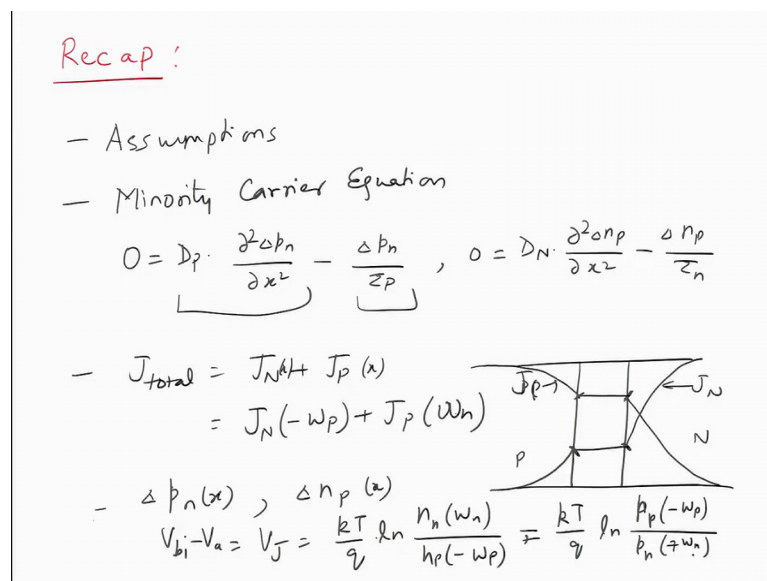 Recap :
— Assumptions
— Minority Carrier Equation
0 = D_P · ∂²Δp_n/∂x² − Δp_n/τ_P , 0 = D_N · ∂²Δn_p/∂x² − Δn_p/τ_n
— J_total = J_N(x) + J_P(x)
= J_N(-w_p) + J_P(w_n)
J_P → ← J_N
P N
- Δp_n(x) , Δn_p(x)
V_bi - V_a = V_J = kT/q ln n_n(w_n)/n_p(-w_p) = kT/q ln p_p(-w_p)/p_n(+w_n)